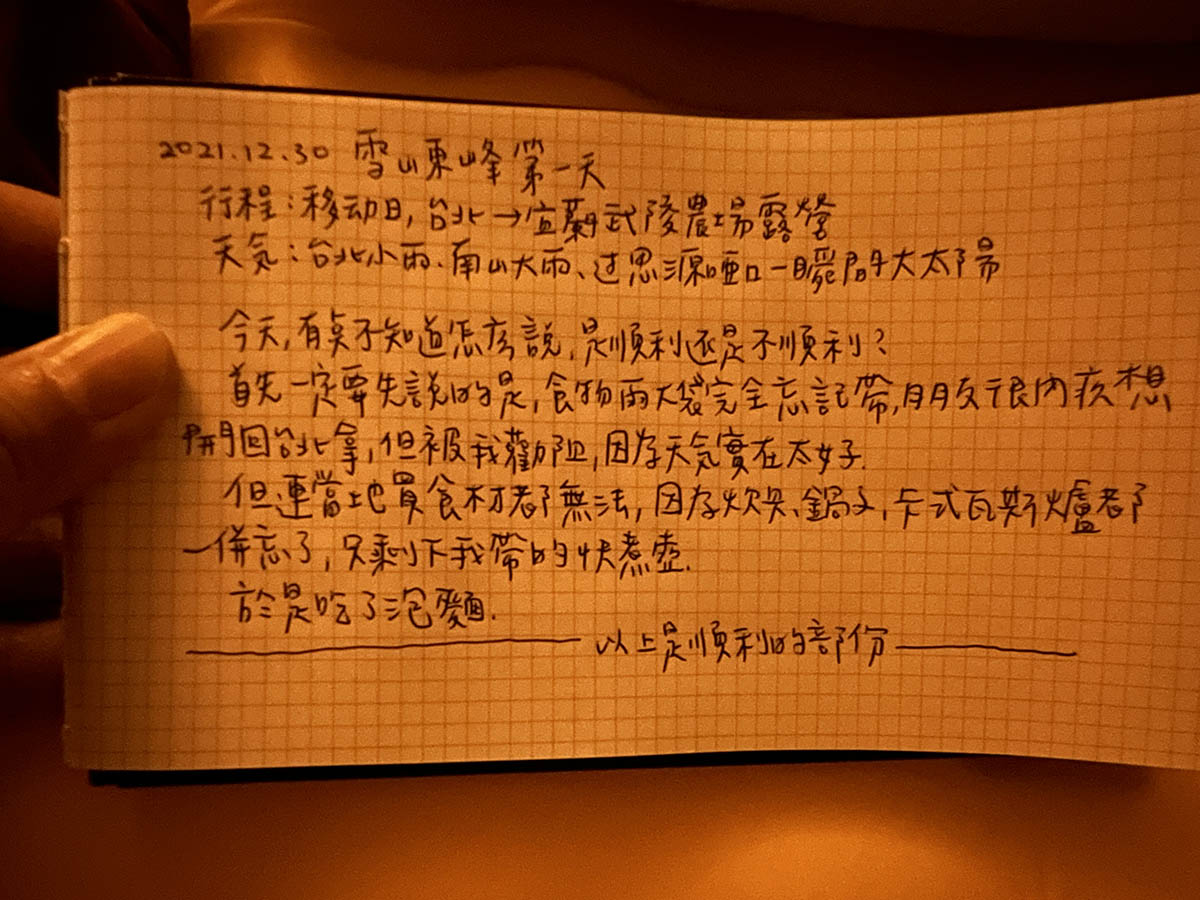 2021.12.30 雪山東峰第一天
行程：移动日，台北→宜蘭武陵農場露營
天気：台北小雨、南山大雨、过思源啞口一瞬間大太陽
今天，有点不知道怎么説，是順利还是不順利？
首先一定要先説的是，食物兩大袋完全忘記帶，朋友很內疚想
開回台北拿，但被我勸阻，因為天気實在太好.
但連當地買食材都無法，因為炊具、鍋子，卡式瓦斯爐都
一併忘了，只剩下我帶的快煮壺.
於是吃了泡麵.
以上是順利的部份